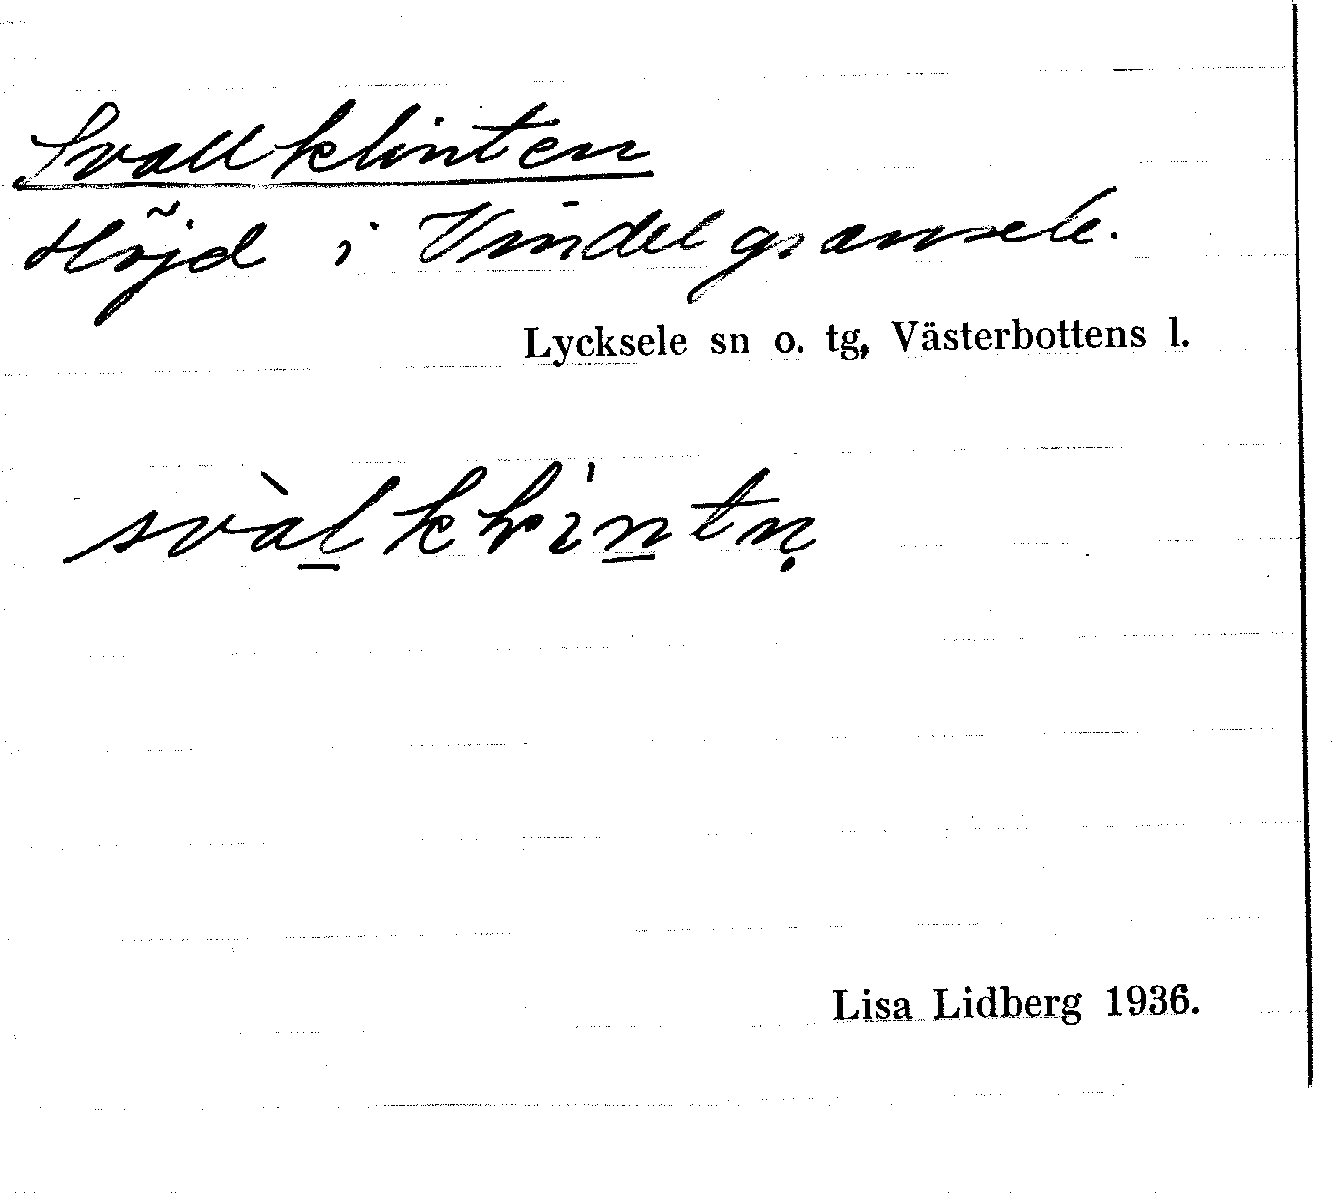 Svallklinten
Höjd i Vindelgransele.
Lycksele sn o. tg, Västerbottens l.
Lisa Lidberg 1936.